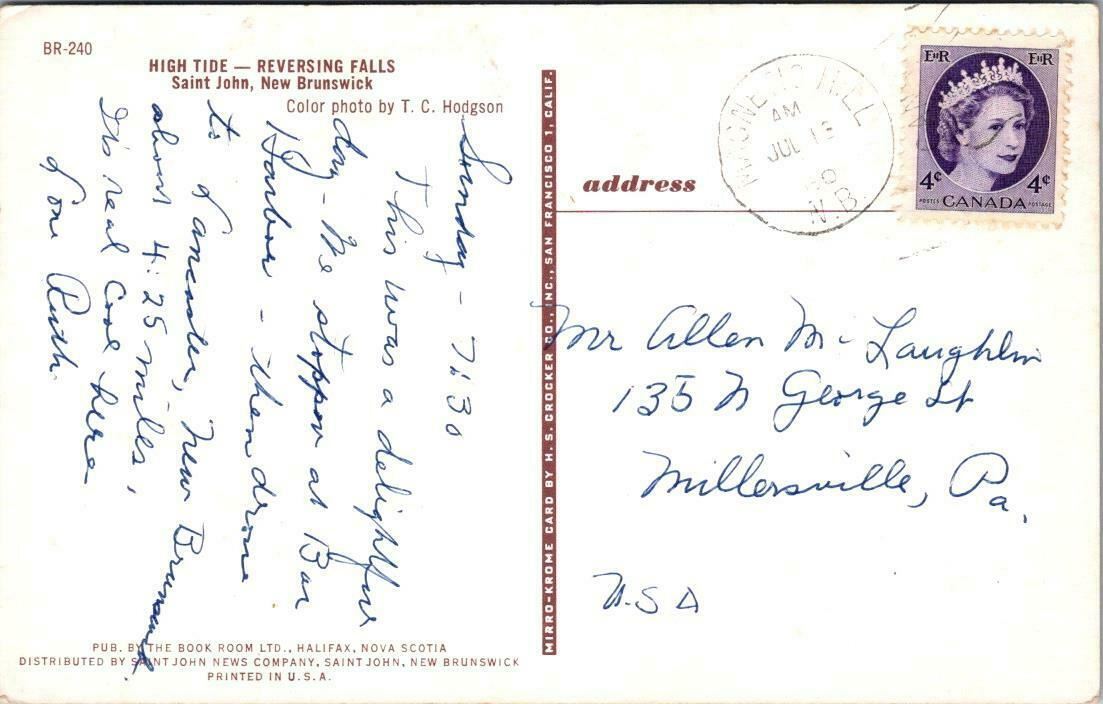 BR-240
HIGH TIDE — REVERSING FALLS
Saint John, New Brunswick
Color photo by T. C. Hodgson
Sunday - 7:30
This was a delightful
day - We stopper at Bar
Harbor - then drove
to Lancaster, New Brunswick
about 425 miles!
It's real cool here -
Love Ruth.
PUB. BY THE BOOK ROOM LTD., HALIFAX, NOVA SCOTIA
DISTRIBUTED BY SAINT JOHN NEWS COMPANY, SAINT JOHN, NEW BRUNSWICK
PRINTED IN U.S.A.
MIRRO-KROME CARD BY H. S. CROCKER CO., INC., SAN FRANCISCO 1, CALIF.
address
MAGNETIC HILL
AM
JUL 13
60
N.B.
EIIR EIIR
4¢ 4¢
POSTES CANADA POSTAGE
Mr Allen McLaughlin
135 N George St
Millersville, Pa.
USA